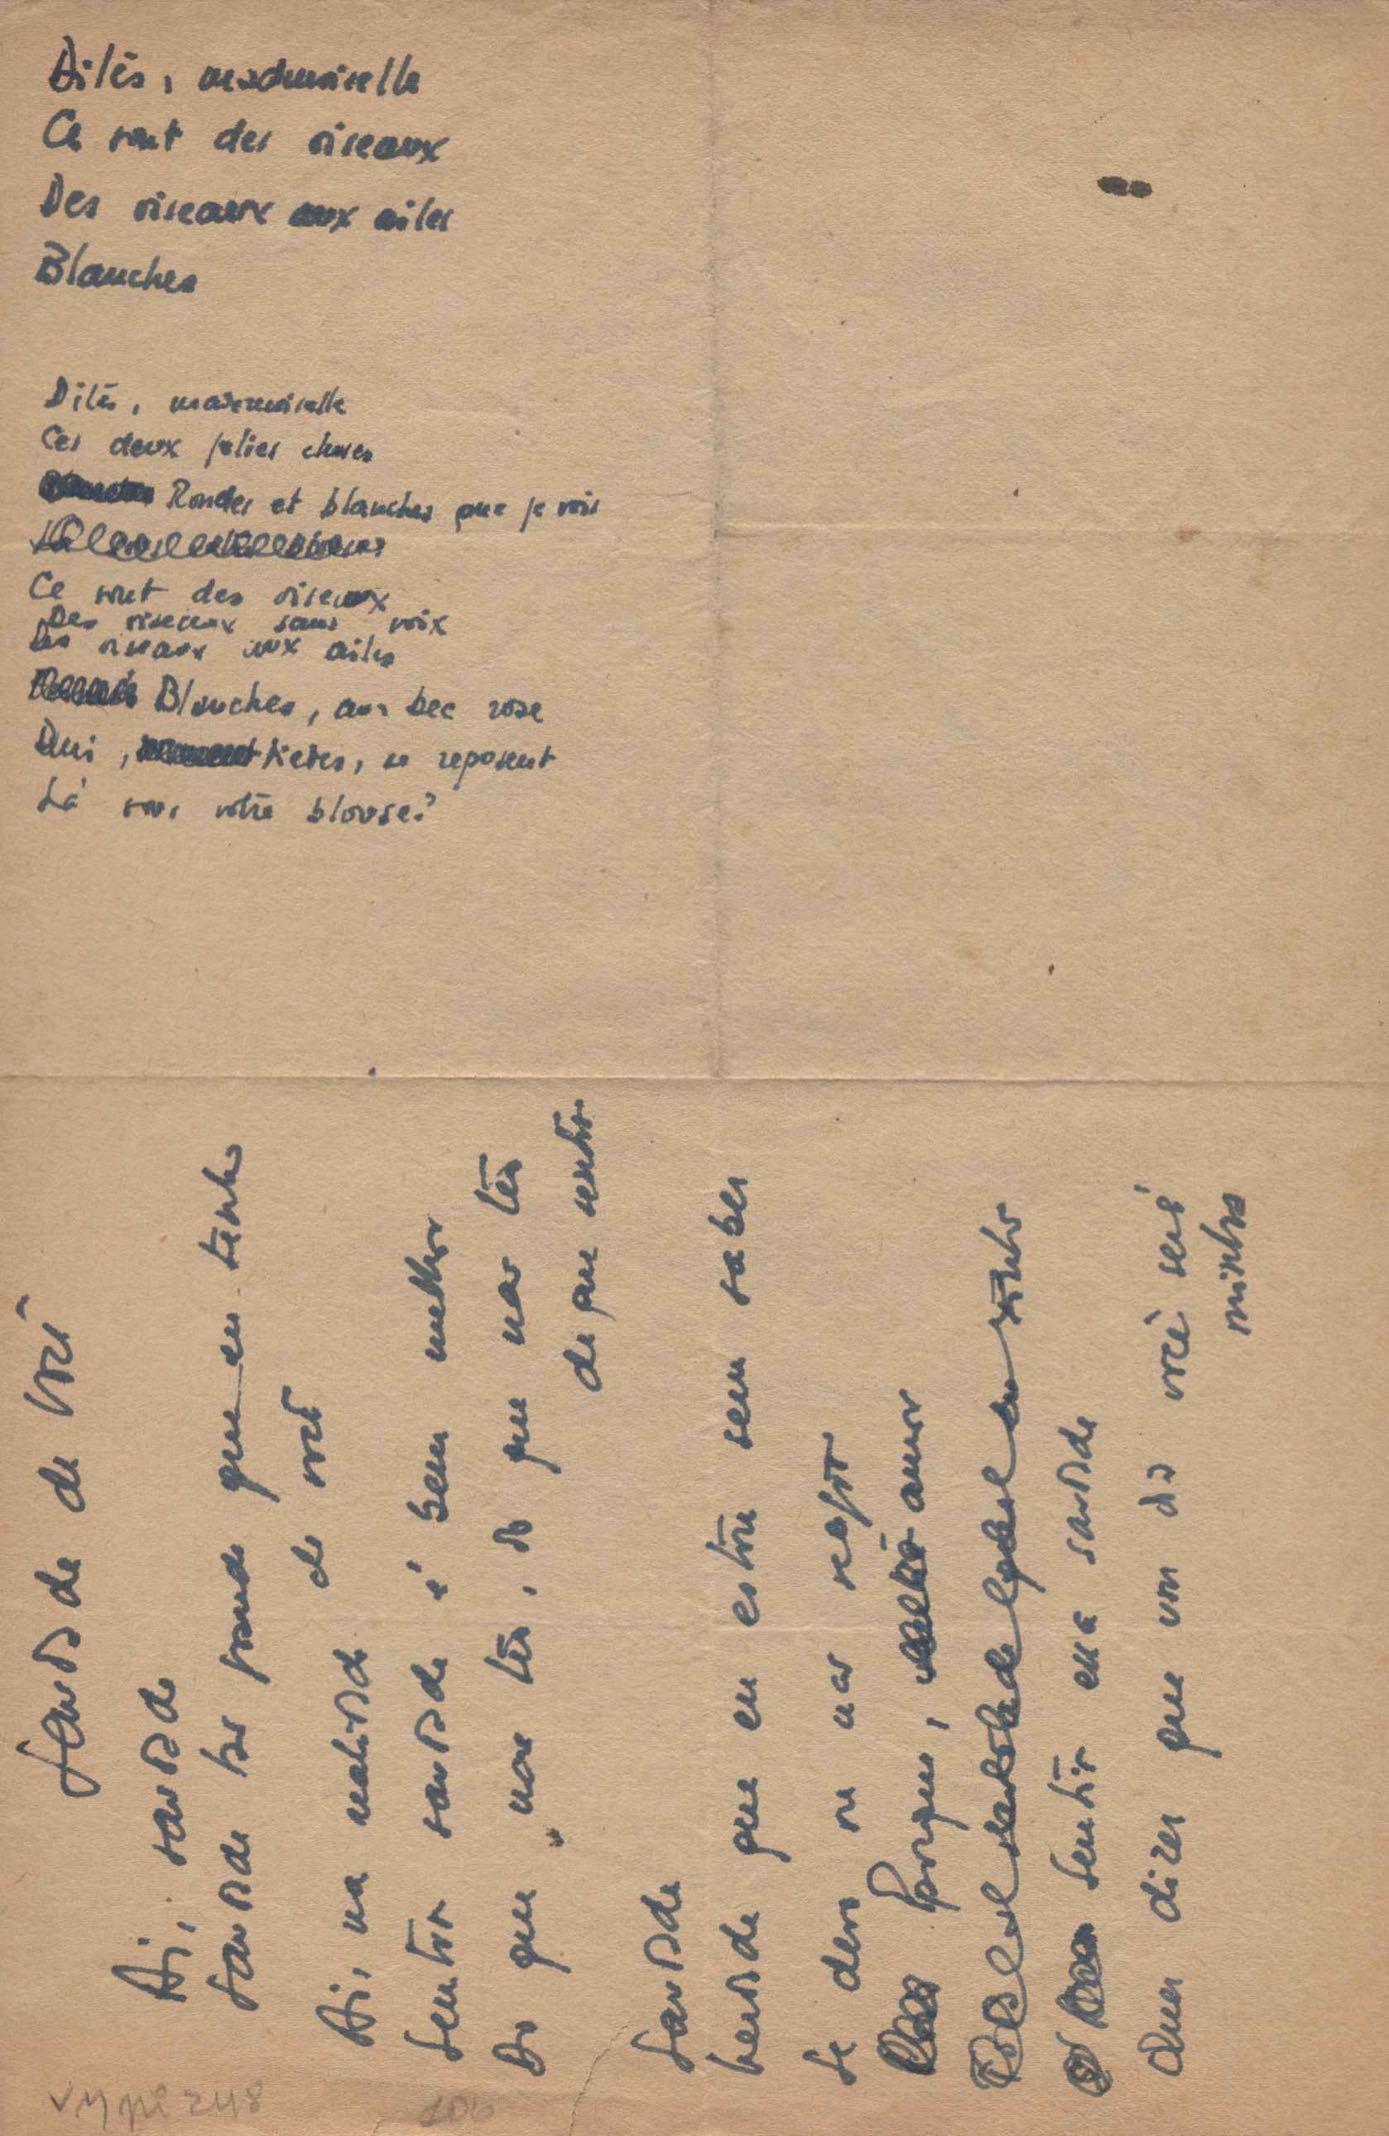 Dités, mademoiselle
Ce sont des oiseaux
Des oiseaux aux ailes
Blanches
Dités, mademoiselle
Ces deux jolies choses
Rondes et blanches que je vois
Ce sont des oiseaux
Des oiseaux sans voix
Des oiseaux aux ailes
Blanches, au bec rose
Qui, se reposent
Là sous votre blouse?
Saudade de você
Ai, saudade
Saudade tão grande que eu tenho
de você
Ai, na realidade
Sentir saudade é bem melhor
Do que não ter, do que não ter
de que sentir
Saudade
Verdade que eu estou sem saber
Se devo ou não
Porque, amor
Sentir essa saudade
Quer dizer que um dia você será
minha
VMpi 248